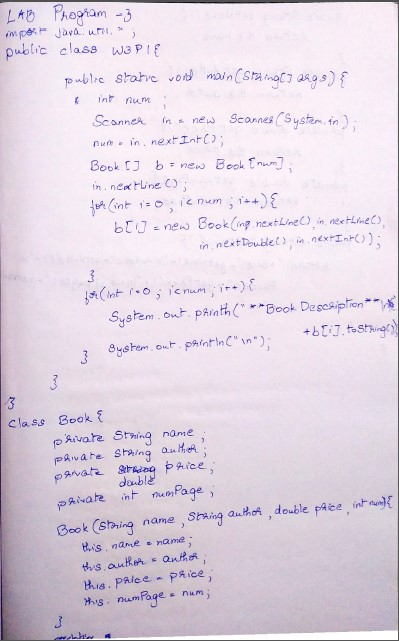 LAB Program -3
import java.util.*;
public class W3P1{
public static void main(String[] args){
int num;
Scanner in = new Scanner(System.in);
num = in.nextInt();
Book[] b = new Book[num];
in.nextLine();
for(int i=0; i<num; i++){
b[i] = new Book(in.nextLine(), in.nextLine(),
in.nextDouble(), in.nextInt());
}
for(int i=0; i<num; i++){
System.out.println("**Book Description**\n"
+b[i].toString());
System.out.println("\n");
}
}
}
class Book{
private String name;
private String author;
private double price;
private int numPage;
Book(String name, String author, double price, int num){
this.name = name;
this.author = author;
this.price = price;
this.numPage = num;
}